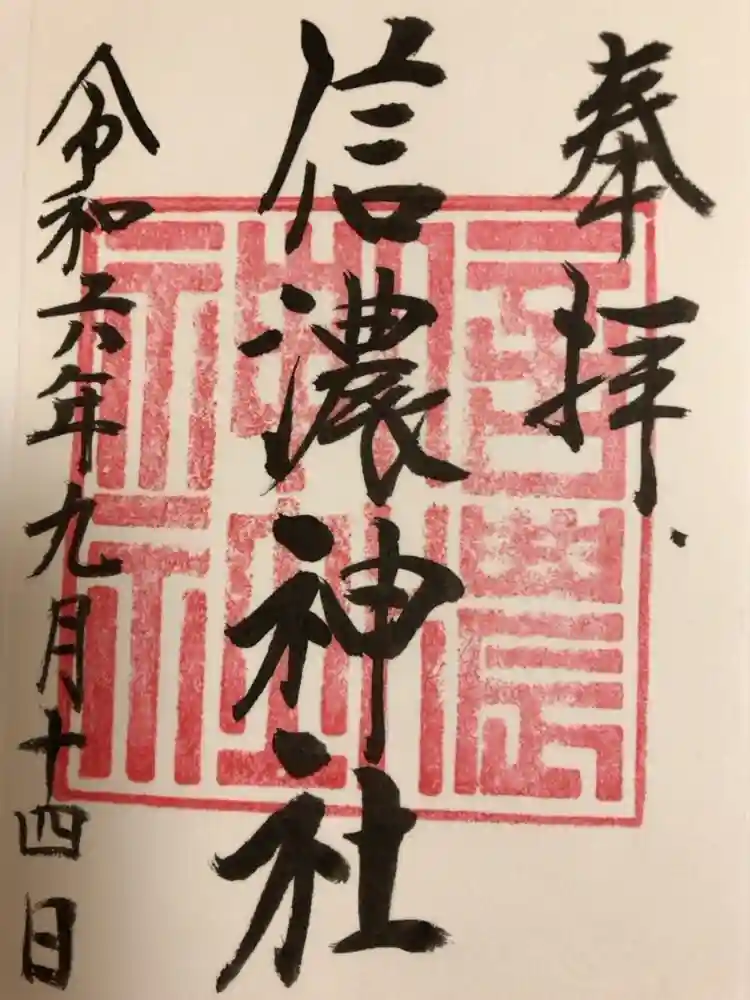 奉拝
信濃神社
令和六年九月十四日
信濃
神社